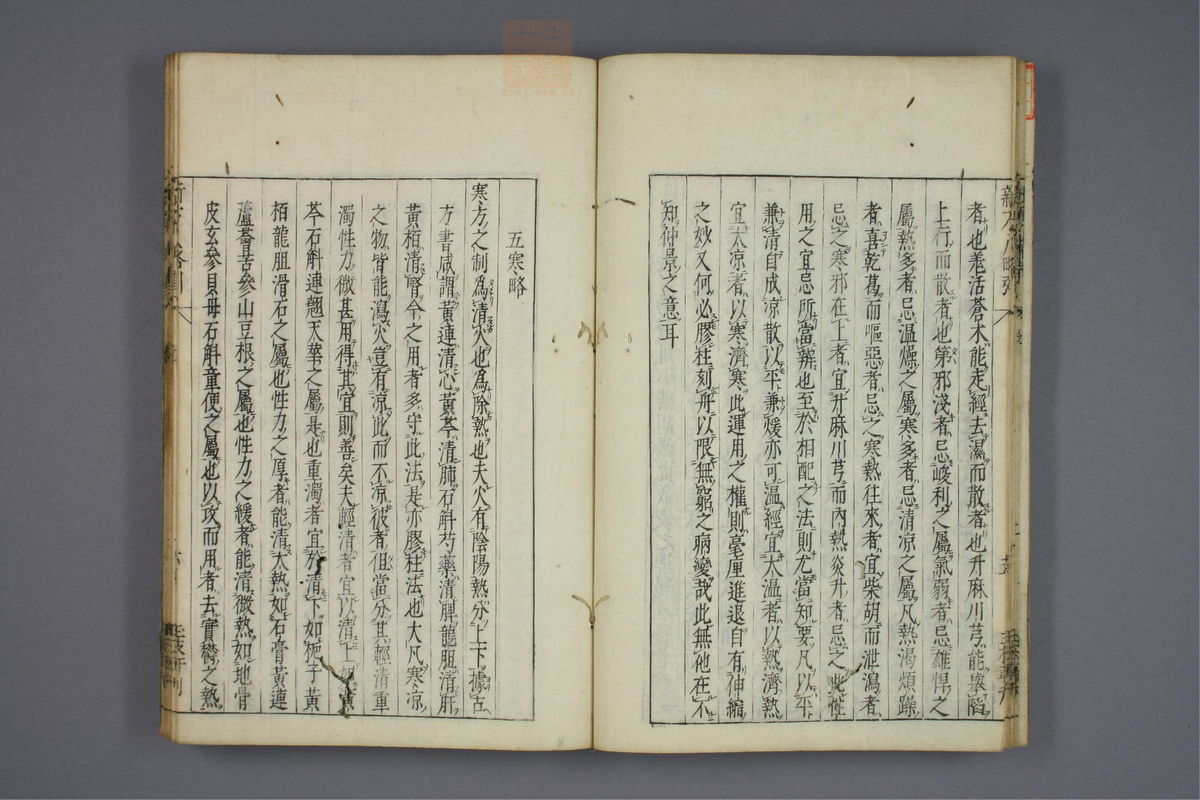 者也羗活蒼术能走經去濕而散者也升麻川芎能舉陷
上行而散者也第邪淺者忌峻利之屬氣弱者忌雄悍之
屬熱多者忌温燥之屬寒多者忌清凉之屬凡熱渴煩躁
者喜乾葛而嘔惡者忌之寒熱往來者宜柴胡而泄瀉者
忌之寒邪在上者宜升麻川芎而內熱炎升者忌之此性
用之宜忌所當辨也至於相配之法則尤當知要凡以平
兼清自成凉散以平兼煖亦可温經宜大温者以熱濟熱
宜大凉者以寒濟寒此運用之權則毫厘進退自有伸縮
之妙又何必膠柱刻舟以限無窮之病變哉此無他在不
知仲景之意耳
五寒略
寒方之制為清火也為除熱也夫火有陰陽熱分上下據古
方書咸謂黃連清心黃芩清肺石斛芍藥清脾龍胆清肝
黃栢清腎今之用者多守此法是亦膠柱法也大凡寒凉
之物皆能瀉火豈有凉此而不凉彼者但當分其輕清重
濁性力微甚用得其宜則善矣夫輕清者宜以清上如黃
芩石斛連翹天華之屬是也重濁者宜於清下如梔子黃
栢龍胆滑石之屬也性力之厚者能清大熱如石膏黃連
蘆薈苦參山豆根之屬也性力之緩者能清微熱如地骨
皮玄參貝母石斛童便之屬也以攻而用者去實鬱之熱